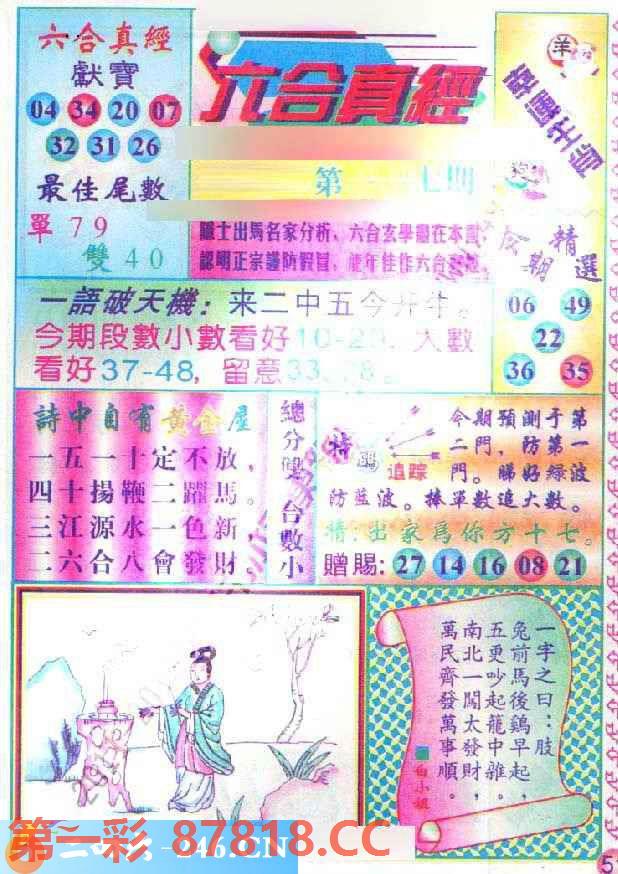 六合真經
獻寶
04 34 20 07
32 31 26
最佳尾數
單79
雙40
六合真經
第 七期
出馬名家分析，六合玄學
認明正宗謹防假冒，
羊
狗
期
精選
06 49
22
36 35
一語破天機：来二中五今开牛。
今期段數小數看好10-2 ，大數
看好37-48，留意33
詩中自有黃金屋
一五一十定不放，
四十揚鞭二躍馬。
三江源水一色新，
二六合八會發財。
總分雙
合數小
特碼追踪
今期預測于第
二門，防第一
門。睇好綠波
防藍波。捧單數追大數。
猜：出家爲你方十七。
贈賜：27 14 16 08 21
一字之曰：肢
兔前馬後鷄早起，
五更吵起龍中雜。
南北一闖太發財，
萬民齊發萬事順。
白小姐
第一彩 87818.CC
246.CN